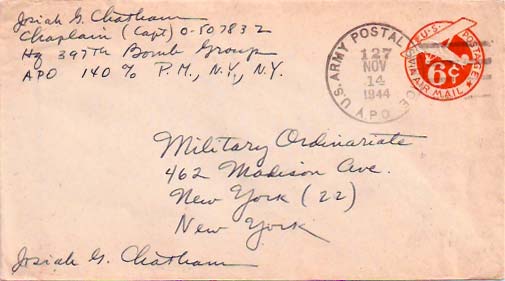 Josiah G. Chatham
Chaplain (Capt) O-507832
Hq 397th Bomb Group
APO 140 % P.M., N.Y., N.Y.
U.S. ARMY POSTAL SERVICE
A.P.O.
127
NOV
14
1944
U.S. POSTAGE
6¢
VIA AIR MAIL
Military Ordinariate
462 Madison Ave.
New York (22)
New York
Josiah G. Chatham